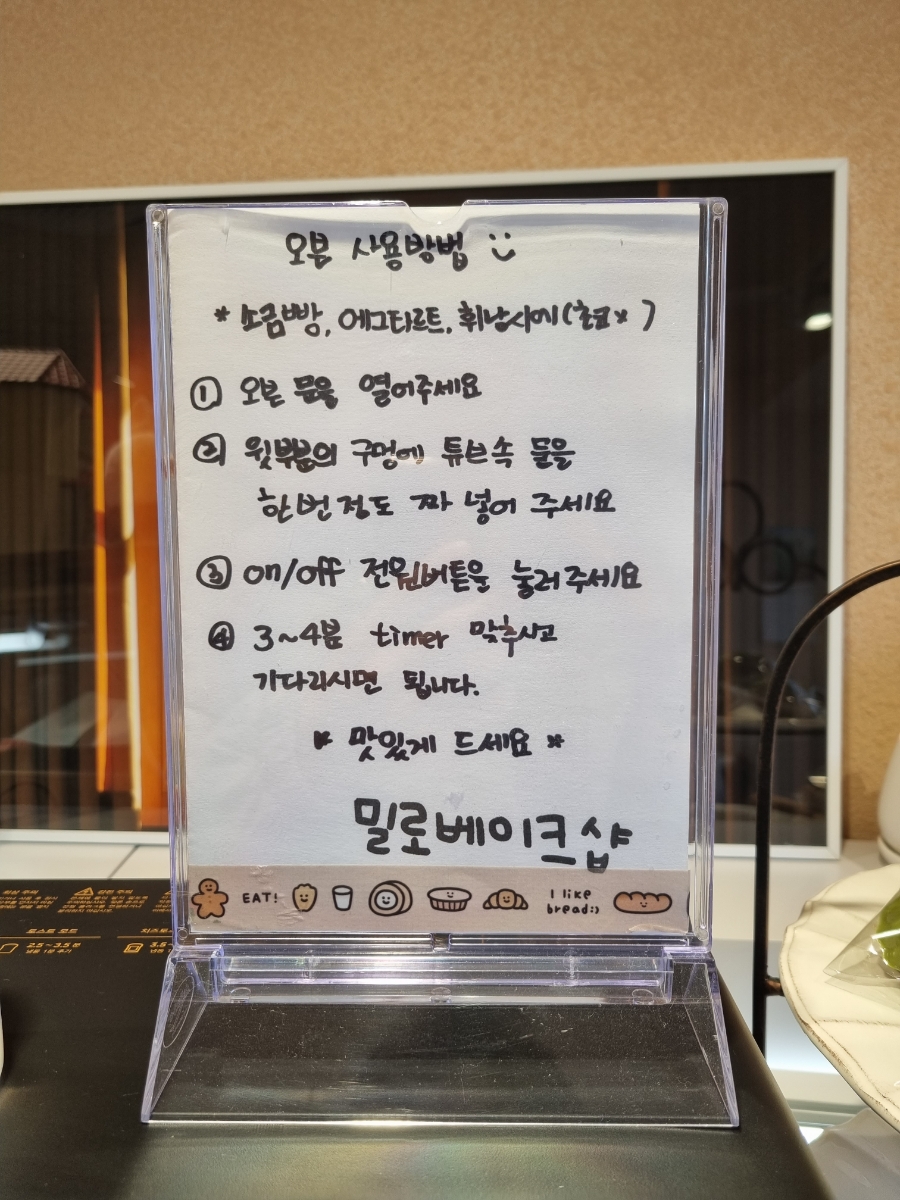 오븐 사용방법
* 소금빵, 에그타르트, 휘낭시에(초코x)
① 오븐 문을 열어주세요
② 윗부분의 구멍에 튜브속 물을
한번정도 짜 넣어 주세요
③ on/off 전원버튼을 눌러주세요
④ 3~4분 timer 맞추시고
기다리시면 됩니다.
* 맛있게 드세요 *
밀로베이크샵
EAT!
I like
bread:)
안전 주의
토스트 모드
2.5~3.5분